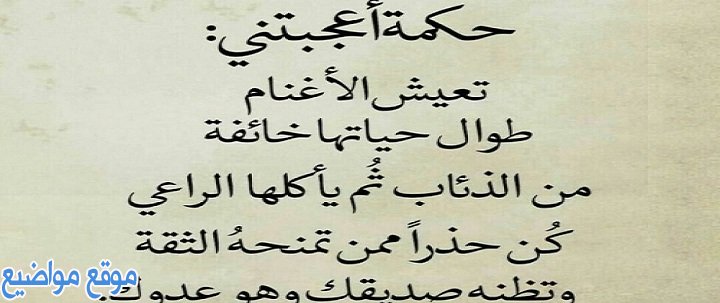 حكمة أعجبتني:
تعيش الأغنام
طوال حياتها خائفة
من الذئاب ثُم يأكلها الراعي
كُن حذراً ممن تمنحهُ الثقة
وتظنه صديقك وهو عدوك.
موقع مواضيع